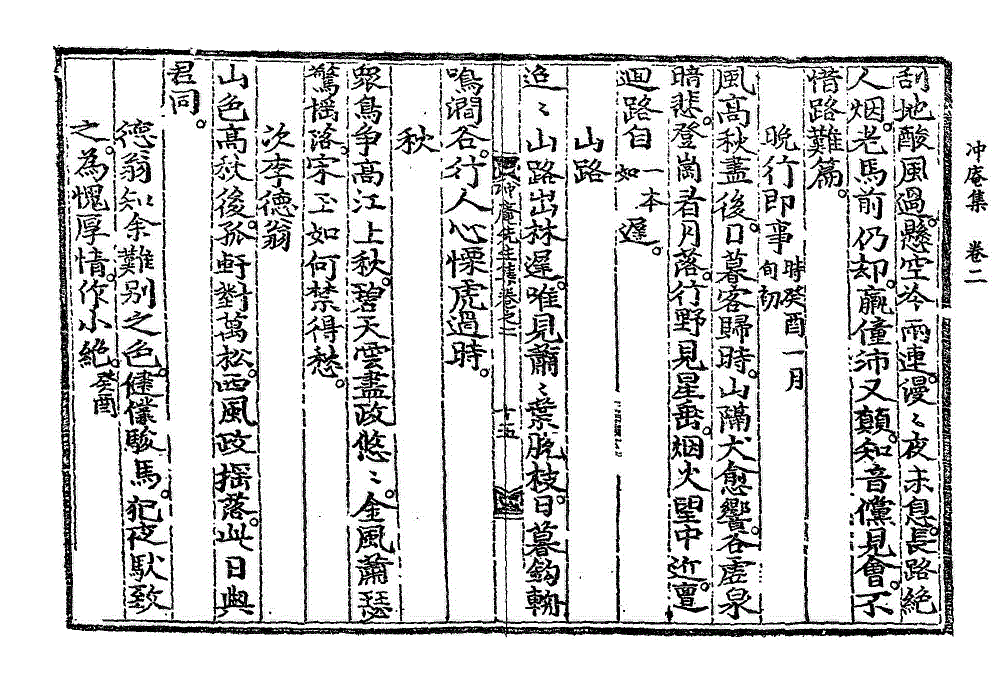 冲庵集　卷二
刮地酸風過。懸空冷雨連。漫〻夜未息。長路絶
人烟。老馬前仍却。羸僮沛又顛。知音儻見會。不
惜路難篇。
晩行即事 時癸酉一月旬初
風高秋盡後。日暮客歸時。山隔犬愈響。谷虛泉
暗悲。登崗看月落。行野見星垂。烟火望中近。亶
廻路自 一本如 遲。
山路
迢〻山路出林遲。唯見蕭〻葉脫枝。日暮鈎輈
冲庵先生集卷之二　十五
鳴澗谷。行人心慄虎過時。
秋
衆鳥争高江上秋。碧天雲盡政悠〻。金風蕭瑟
驚搖落。宋玉如何禁得愁。
次李德翁
山色高秋後。孤軒對萬松。西風政搖落。此日與
君同。
德翁知余難别之色。健僕駿馬。犯夜馱致
之。為愧厚情。作小絶。癸酉